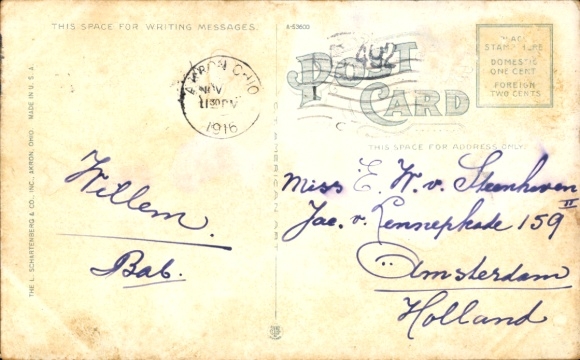 THIS SPACE FOR WRITING MESSAGES.
A-63600
POST CARD
492
PLACE
STAMP HERE
DOMESTIC
ONE CENT
FOREIGN
TWO CENTS
AKRON OHIO
NOV
1130 PM
1916
1
C
THIS SPACE FOR ADDRESS ONLY.
Willem.
Bab.
Miss E. W. v. Steenhoven
Jac. v. Lennepkade 159 II
Amsterdam
Holland
THE L. SCHARTENBERG & CO., INC., AKRON, OHIO. MADE IN U.S.A.
C.T. AMERICAN ART